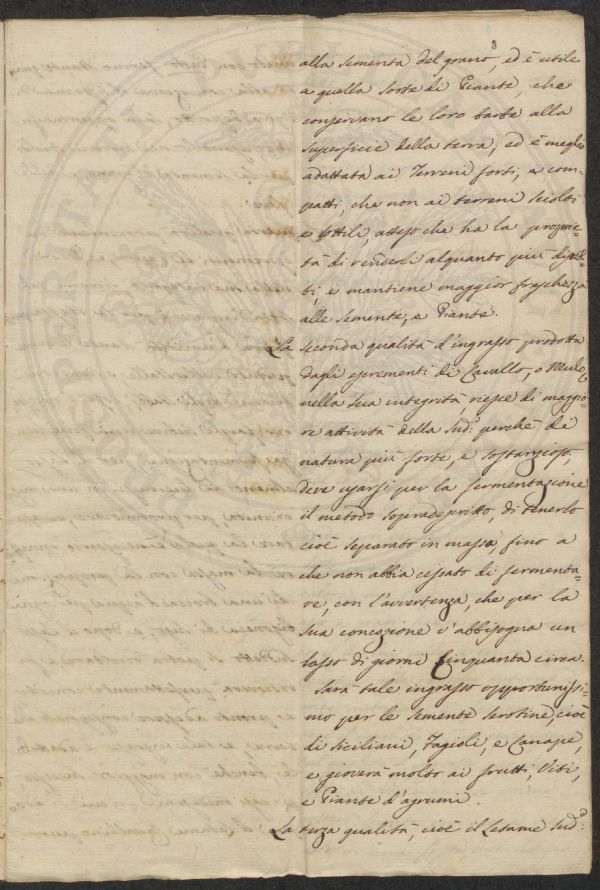 alla sementa del grano, ed è utile
a quella sorte di Piante, che
conservano le loro barbe alla
superficie della terra; ed è meglio
adattata ai Terreni forti, e com-
patti, che non ai terreni sciolti
e sottili, atteso che ha la proprie-
tà di renderli alquanto più
e mantiene maggior freschezza
alle semente, e Piante.
La seconda qualità d'ingrasso prodotta
dagli escrementi di Cavallo, o Mulo,
nella sua integrità, riesce di maggio-
re attività della Sud: perchè di
natura più forte, e sostanziosa,
deve usarsi per la fermentazione
il metodo sopradescritto, di tenerlo
cioè separato in massa, fino a
che non abbia cessato di fermenta-
re, con l'avvertenza, che per la
sua concozione v'abbisogna un
lasso di giorni Cinquanta circa.
Sarà tale ingrasso opportunissi-
mo per le semente serotine, cioè
di siciliani, Fagioli, e Canape,
e gioverà molto ai frutti, Viti,
e Piante d'agrumi.
La terza qualità, cioè il Letame Sud: